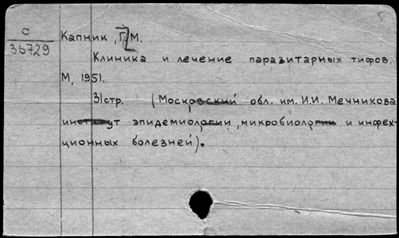 5
О
36729
Капник, Г.М.
Клиника и лечение паразитарных тифов.
М, 1951.
31стр. (Московский обл. им. И.И. Мечникова
институт эпидемиологии, микробиологии и инфек-
ционных болезней).